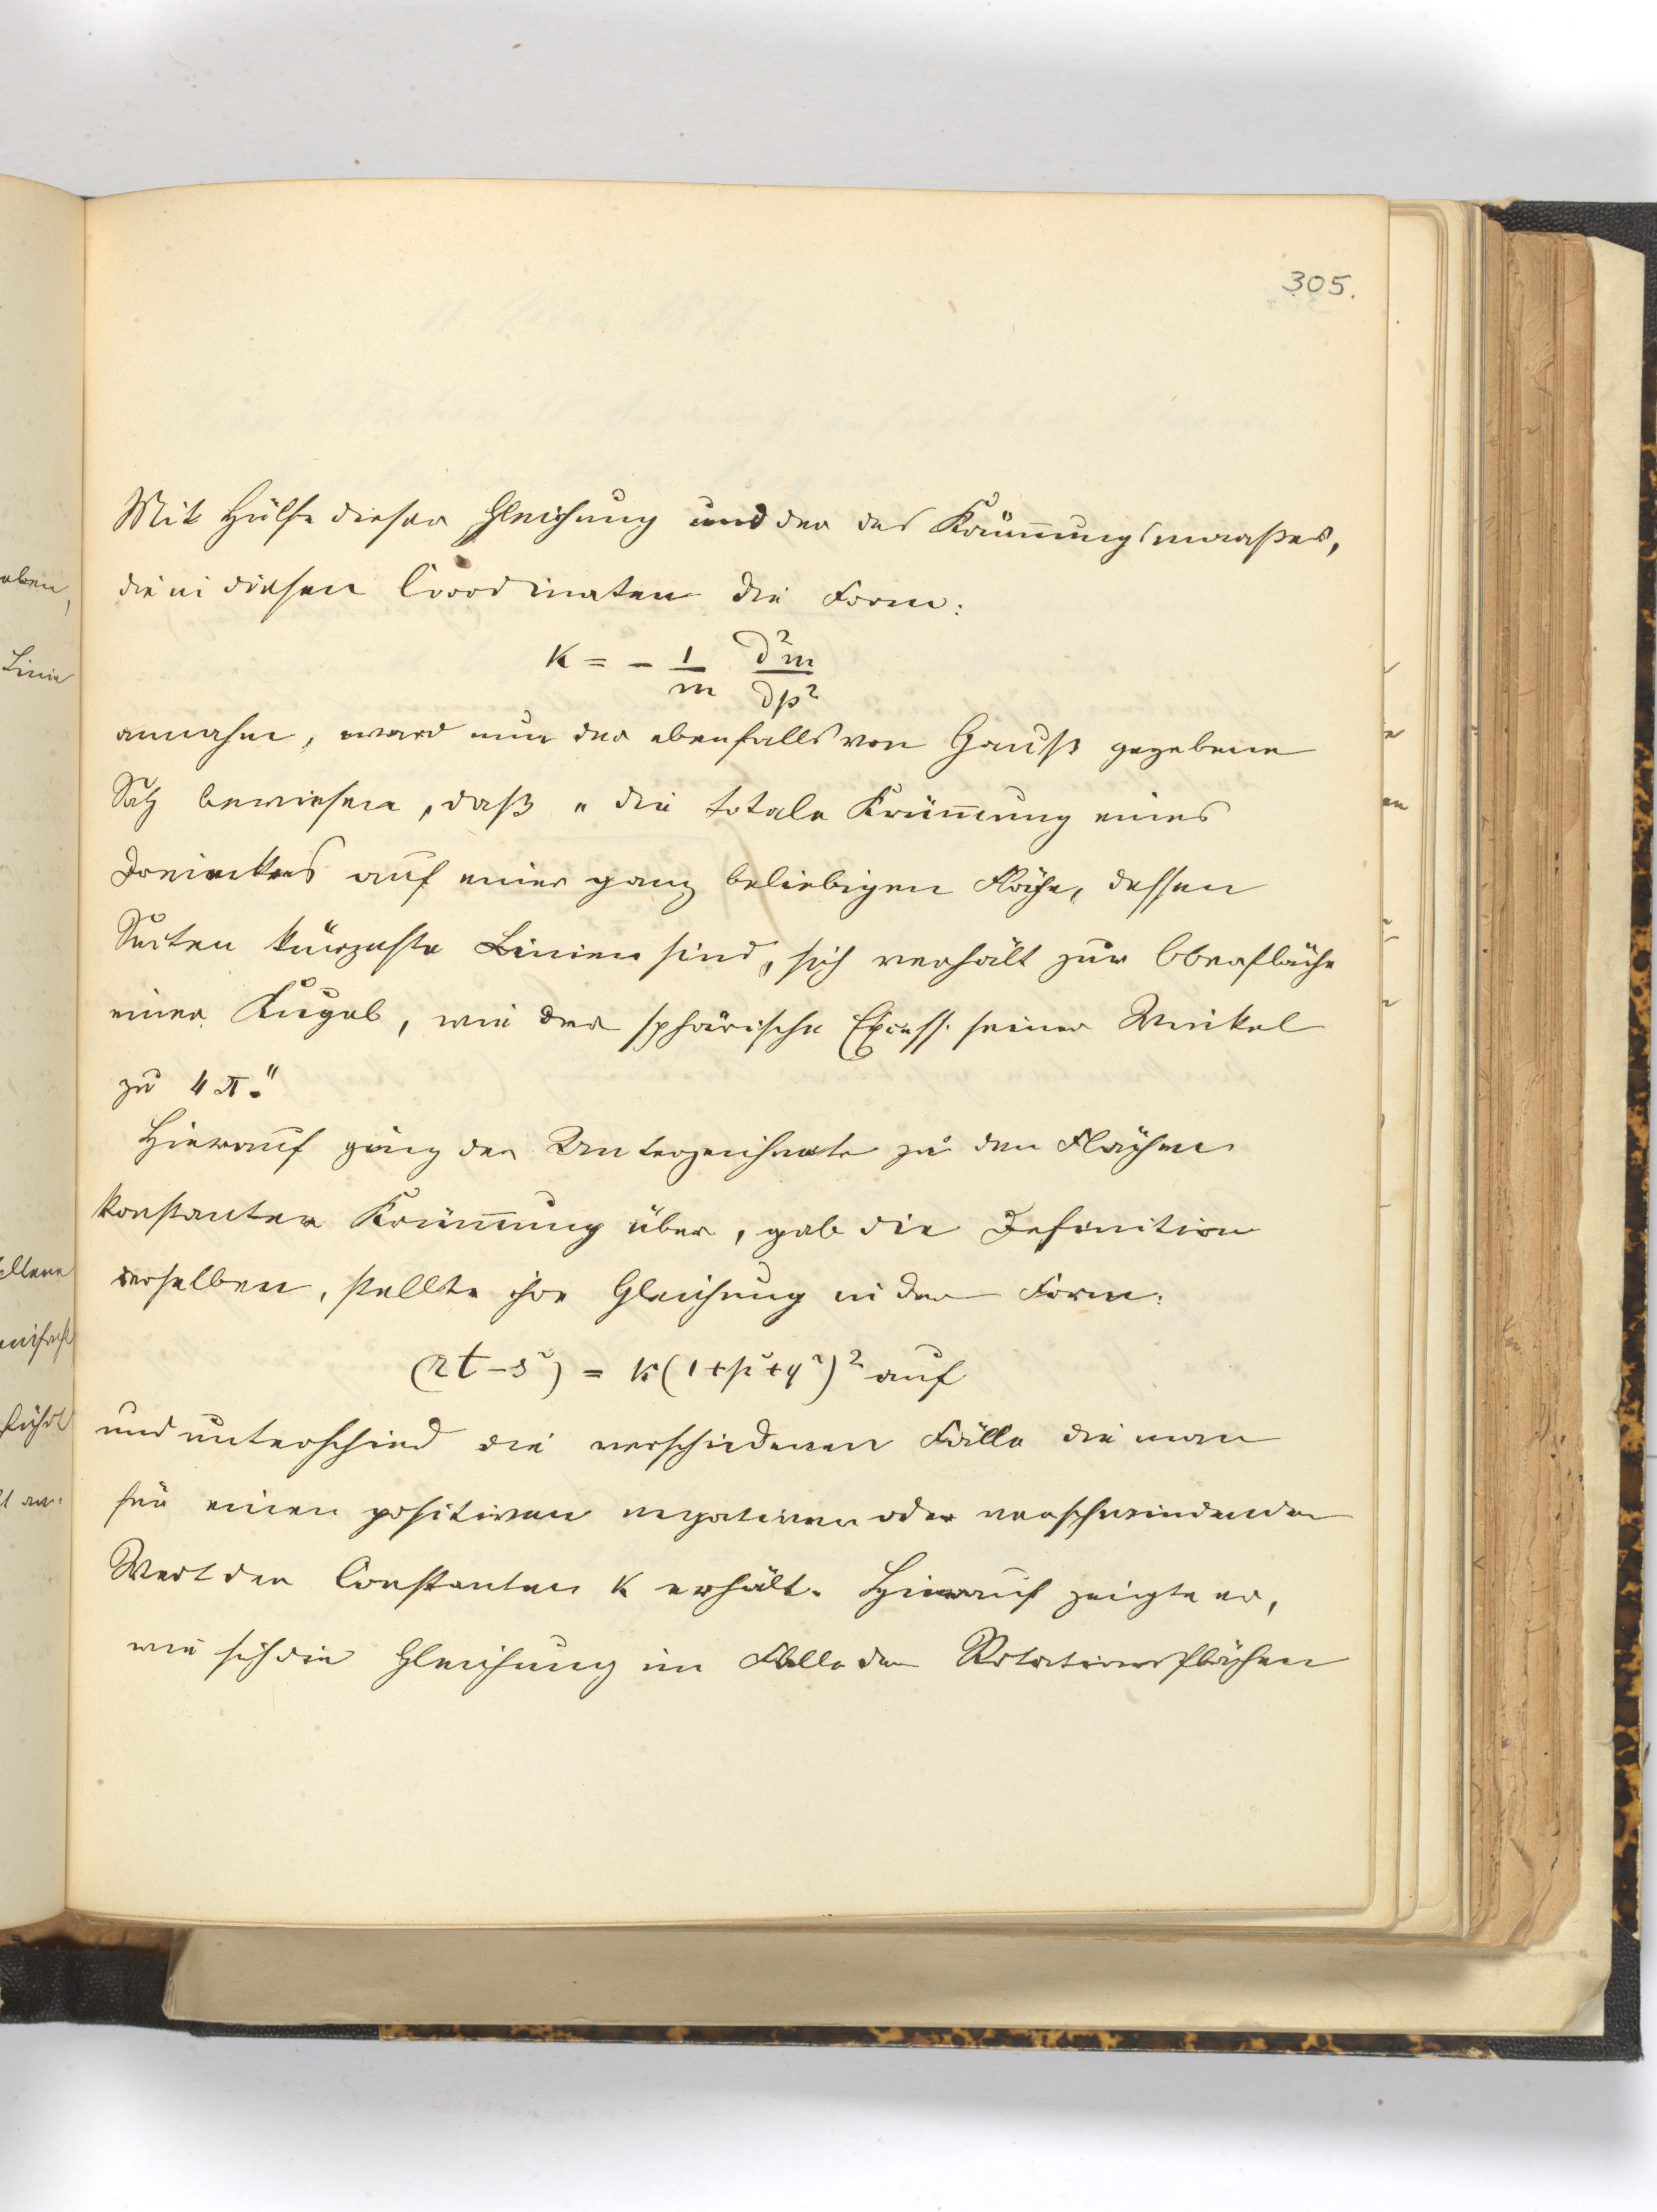 305.
Mit Hülfe dieser Gleichung und der des Krümmungsmaaßes,
die in diesen Coordinaten die Form:
k = - 1/m ∂²m/∂p²
annahm, ward nun der ebenfalls von Gauß gegebene
Satz bewiesen, daß „die totale Krümmung eines
Dreieckes auf einer ganz beliebigen Fläche, dessen
Seiten kürzeste Linien sind, sich verhält zur Oberfläche
einer Kugel, wie der sphärische Excess seiner Winkel
zu 4π."
Hierauf ging der Unterzeichnete zu den Flächen
konstanter Krümmung über, gab die Definition
derselben, stellte ihre Gleichung in der Form:
(rt-s²) = k(1+p²+q²)² auf
und unterschied die verschiedenen Fälle die man
für einen positiven negativen oder verschwindenden
Wert der Constanten k erhält. Hierauf zeigte er,
wie sich die Gleichung im Falle der Rotationsflächen